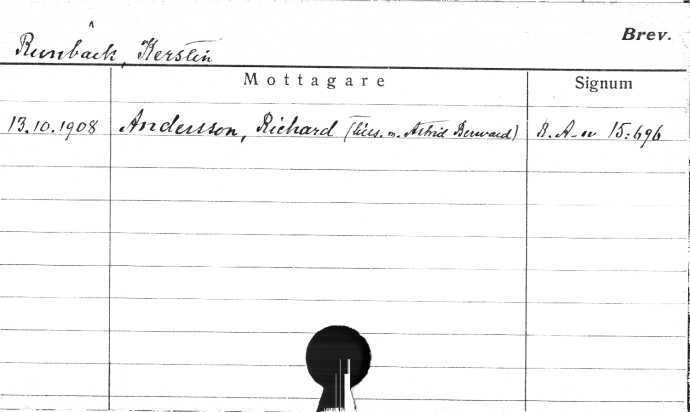 Brev.
Runbäck, Kerstin
Mottagare Signum
13.10.1908 Andersson, Richard (tills. m. Astrid Berwald) B. A-n 15:696